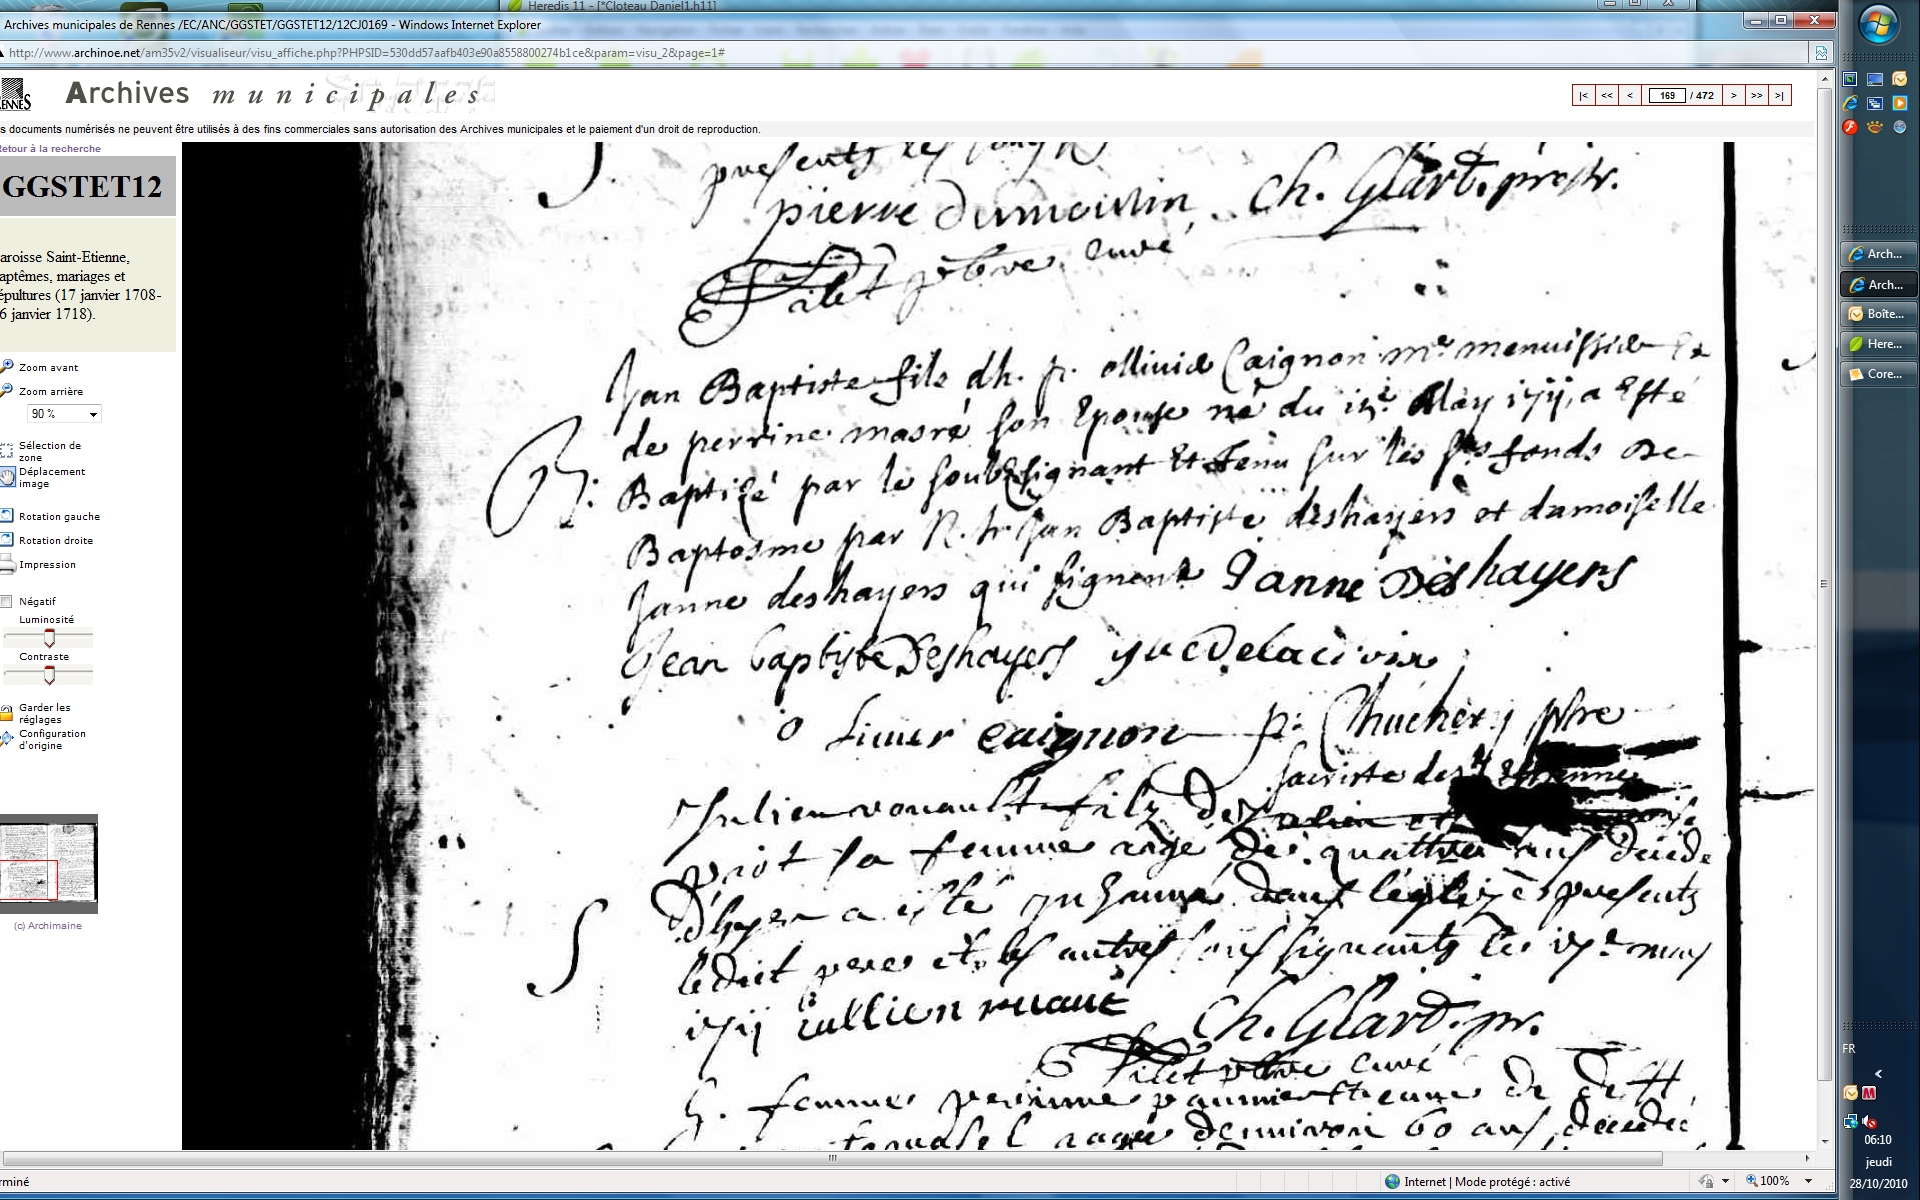 Heredis 11 - [*Cloteau Daniel1.h11]
Archives municipales de Rennes /EC/ANC/GGSTET/GGSTET12/12CJ0169 - Windows Internet Explorer
http://www.archinoe.net/am35v2/visualiseur/visu_affiche.php?PHPSID=530dd57aafb403e90a8558800274b1ce&param=visu_2&page=1#
RENNES Archives municipales
|< << < 169 / 472 > >> >|
s documents numérisés ne peuvent être utilisés à des fins commerciales sans autorisation des Archives municipales et le paiement d'un droit de reproduction.
Retour à la recherche
GGSTET12
aroisse Saint-Etienne,
aptêmes, mariages et
épultures (17 janvier 1708-
6 janvier 1718).
Zoom avant
Zoom arrière
90 %
Sélection de
zone
Déplacement
image
Rotation gauche
Rotation droite
Impression
Négatif
Luminosité
Contraste
Garder les
réglages
Configuration
d'origine
(c) Archimaine
presents les
pierre dumoulin Ch. Glart. prestr.
Filet pbtre curé
Jan Baptiste fils dh. p. ollivie Caignon me menuissie Et
de perrine masré son Epouse né du May 1711 a Esté
B: Baptizé par le soubsignant Et tenu sur les sts fonds de
Baptosme par N. h. Jan Baptiste deshayers et damoiselle
Janne deshayers qui signent Janne Deshayers
Jean baptiste Deshayers
olivier caignon p: Chuchery pbre
sacriste de st Estienne
Julien rouault filz de
priot sa femme age de quattre ans decede
S d'hyer a esté inhumé dans l'eglize presents
ledit pere et les autres soussignants le may
1711 iullien ruaut Ch. Glart. pr.
Filet pbtre curé
h. femme perrinne de
60 ans decedee
Arch...
Arch...
Boîte...
Here...
Core...
FR
06:10
jeudi
28/10/2010
rminé
Internet | Mode protégé : activé
100%